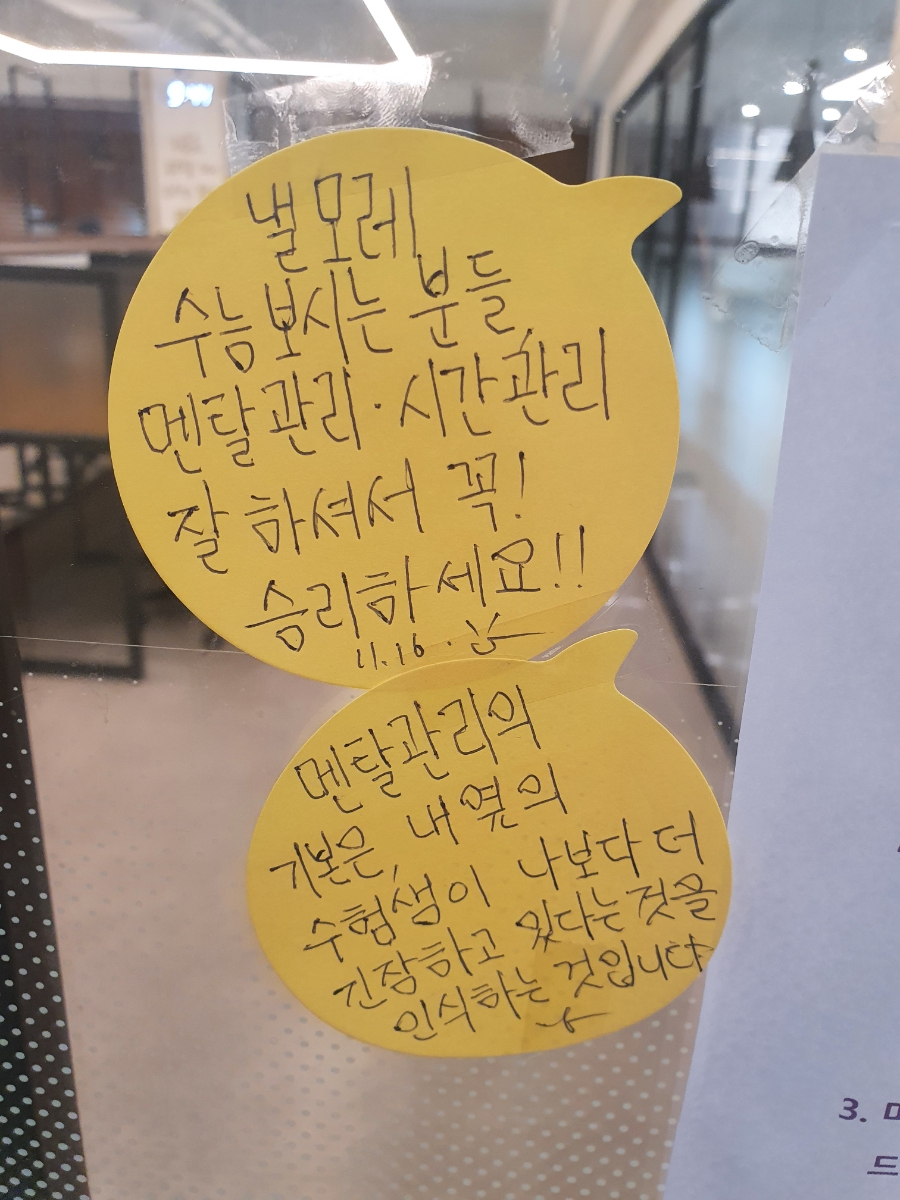 낼 모레
수능 보시는 분들
멘탈관리·시간관리
잘 하셔서 꼭!
승리하세요!!
11.16.
멘탈관리의
기본은, 내 옆의
수험생이 나보다 더
긴장하고 있다는 것을
인식하는 것입니다
3.
드